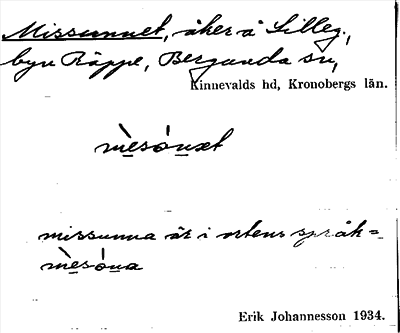 Missunnet, åker å Lilleg.,
byn Räppe, Bergunda sn,
Kinnevalds hd, Kronobergs län.
mìsónet
missunna är i ortens språk=
mìsóna
Erik Johannesson 1934.